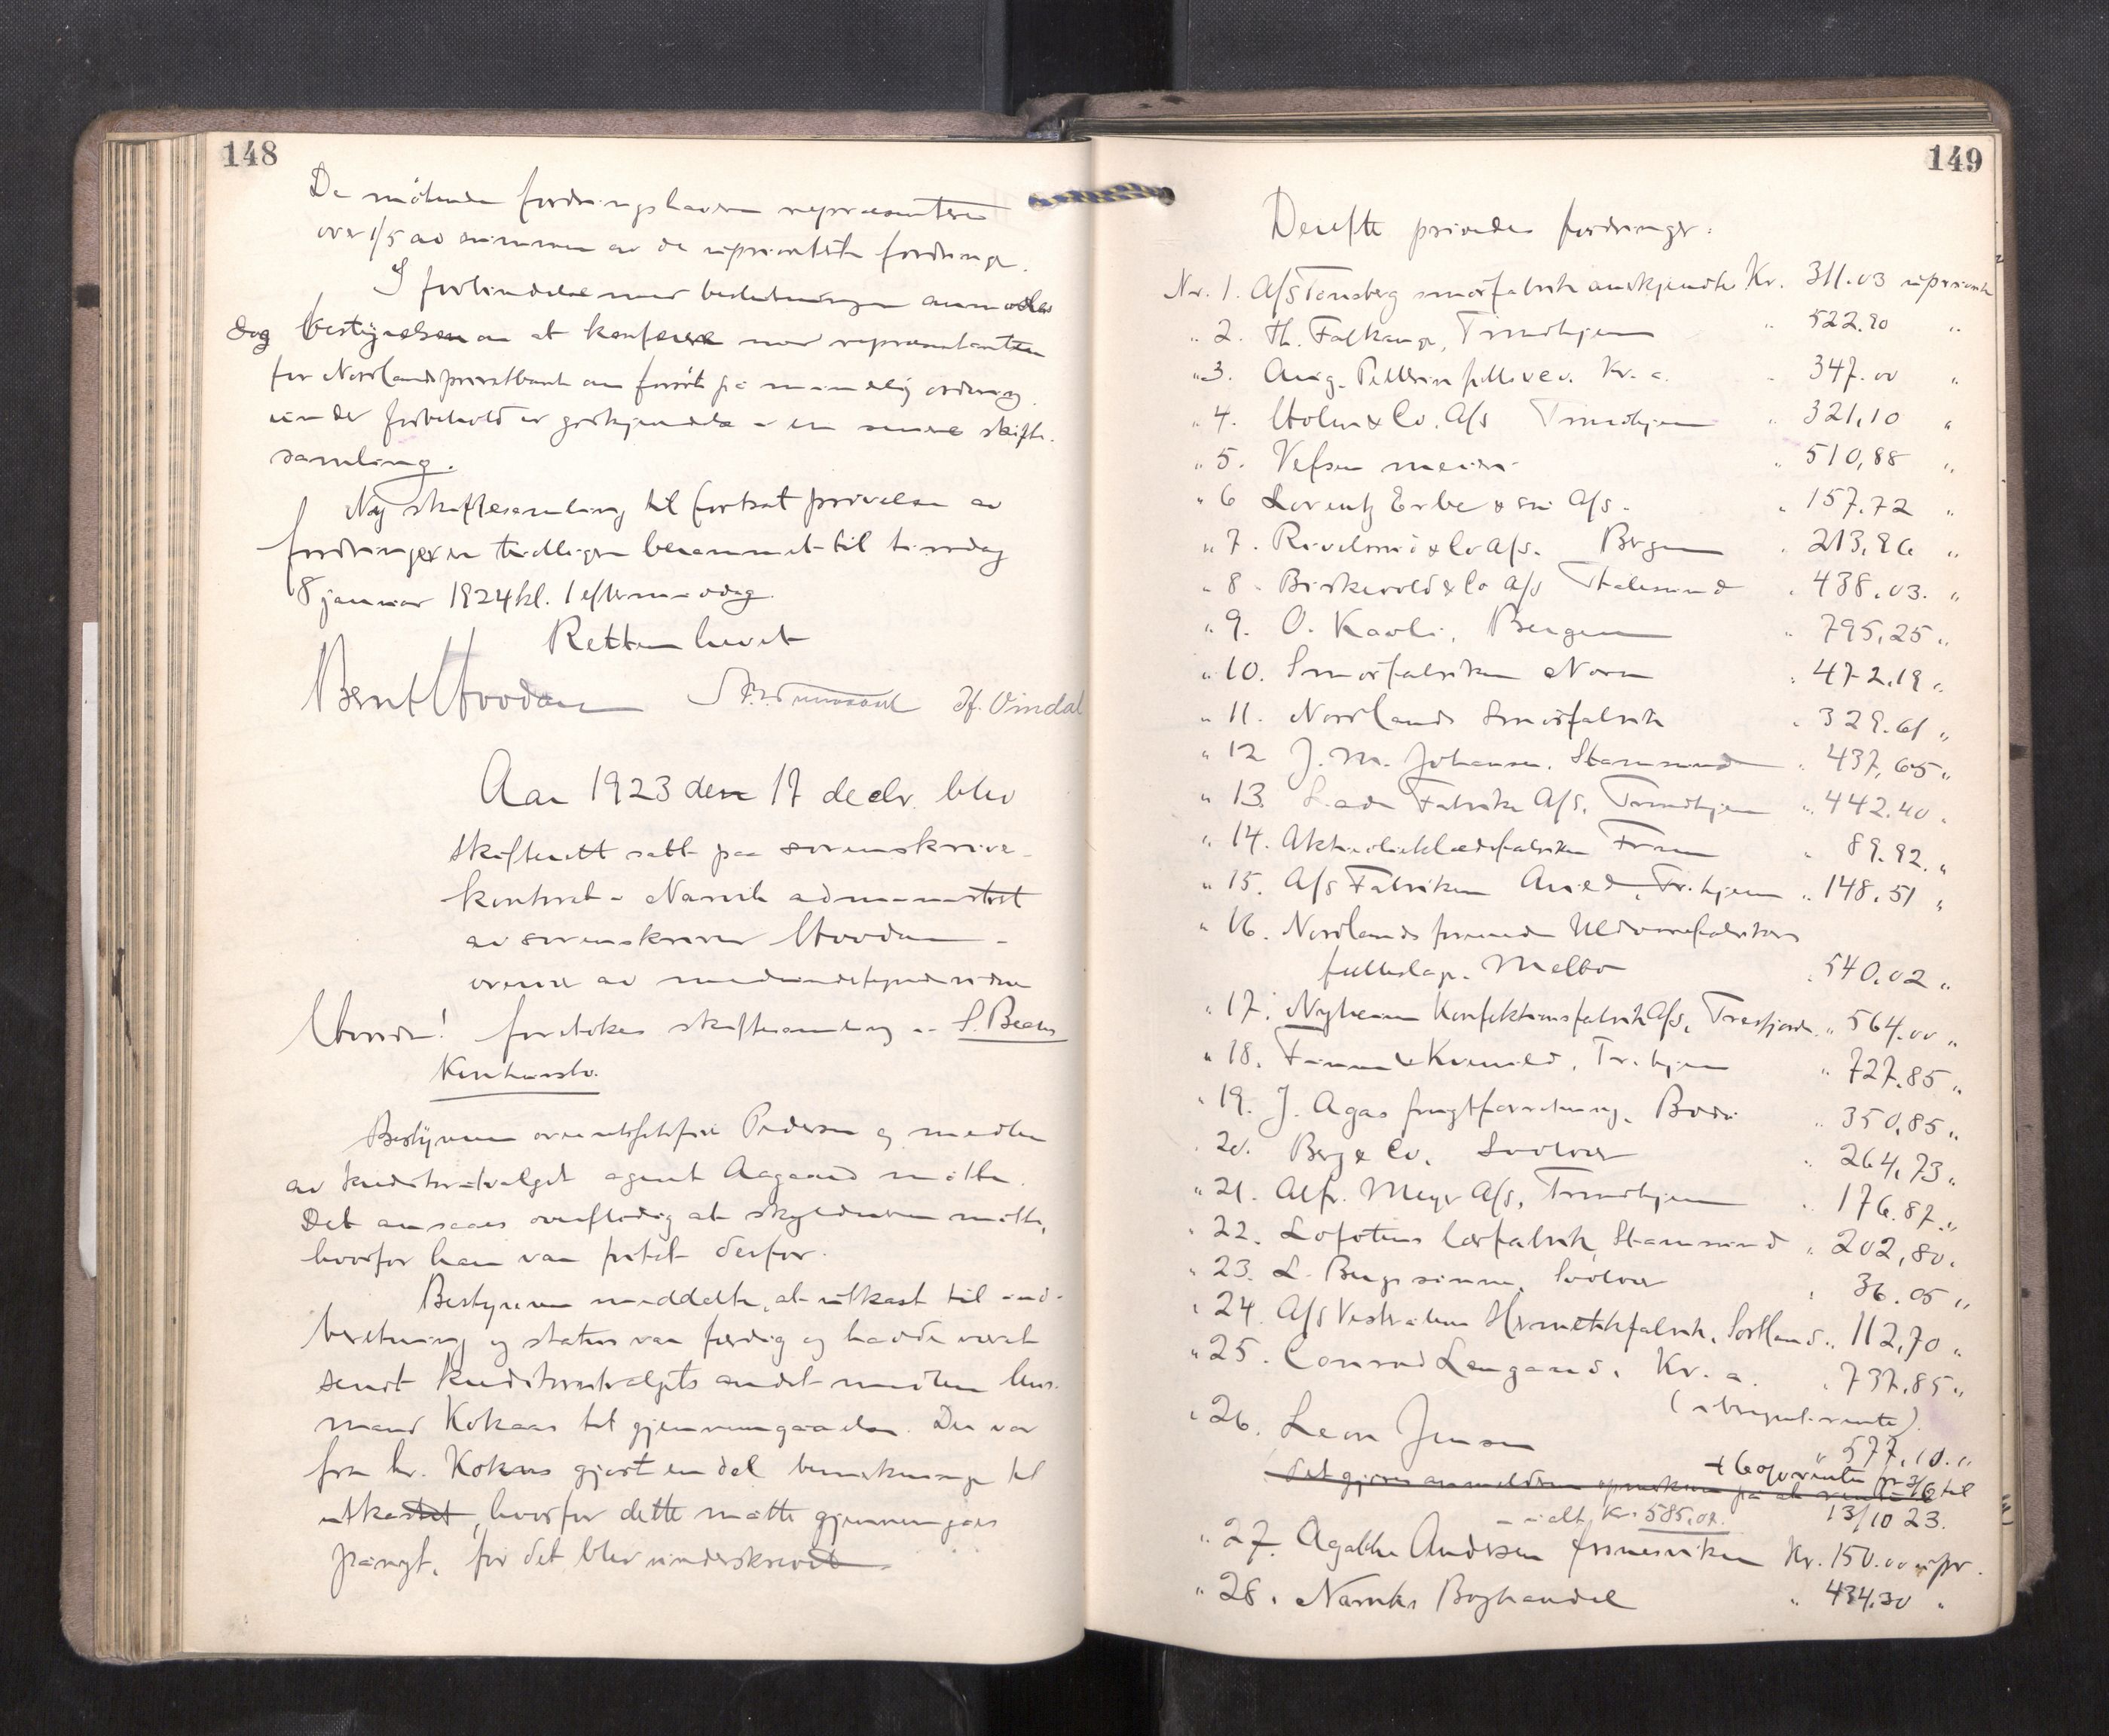 148
De møtende fordringshavere repræsenterte
over 1/5 av summen av de uprioriterte fordringer.
I forbindelse med beslutningen anmodes
dog bestyrelsen om at konferere med repræsentanten
for Nordlands privatbank om forsøk på mindelig ordning
under forbehold av godkjendelse i en senere skifte-
samling.
Ny skiftesamling til fortsat prøvelse av
fordringer er tidligere berammet til tirsdag
8 januar 1924 kl. 1 eftermiddag.
Retten hevet
Bernt Hovdan H. Vindal
Aar 1923 den 17 decbr. blev
skifterett satt paa sorenskriver-
kontoret i Narvik administrert
av sorenskriver Hovdan i
overvær av medundertegnede vidne
Hvorda! foretokes skiftesamling i S. Beers
konkursbo.
Bestyreren overretssakfører Pedersen og medlem
av kreditorutvalget agent Aagaard møtte.
Det ansaaes overflødig at skyldneren møtte,
hvorfor han var fritat derfor.
Bestyreren meddelte, at utkast til ind-
beretning og status var færdig og hadde været
sendt kreditorutvalgets andet medlem
mand Kokaas til gjennemgaaelse. Der var
fra hr. Kokaas gjort en del bemerkninger til
utkastet, hvorfor dette måtte gjennemgaaes
pånyt, før det blev underskrevet.
149
Derefter prøvedes fordringer:
Nr. 1. A/S Tønsberg smørfabrik anerkjendte Kr. 311.03 uprioritert
" 2. Th. Falkanger, Trondhjem " 522.90 "
" 3. Aug. Pellerin fils & Co. Kr.a. " 347.00 "
" 4. Holm & Co. A/S Trondhjem " 321,10 "
" 5. Vefsen meieri " 510,88 "
" 6 Lorentz Erbe & søn A/S. " 157.72 "
" 7. & Co A/S. Bergen " 213,86 "
" 8. & Co A/S Aalesund " 438.03. "
" 9. O. Kavli, Bergen " 795,25 "
" 10. Smørfabriken Nora " 472.19 "
" 11. Nordlands Smørfabrik " 329.61 "
" 12 J. M. Johansen, Stamsund " 437,65 "
" 13. Lade Fabriker A/S, Trondhjem " 442.40 "
" 14. Aktieoljeklædefabriken Fram " 89.92 "
" 15. A/S Fabriken Tr.hjem " 148.51 "
" 16. Nordlands forenede Uldvarefabrikers
fællesslag. Melbo " 540.02 "
" 17. Nyheim Konfektionsfabrik A/S, Tresfjord " 564.00 "
" 18. Finne & Kvenild, Tr.hjem " 727.85 "
" 19. J. Agas frugtforretning, Bodø " 350,85 "
" 20. Berg & Co. Svolvær " 264,73 "
" 21. Alfr. Meyer A/S, Trondhjem " 176.87 "
" 22. Lofotens lærfabrik, Stamsund " 202,80 "
" 23. L. Berg sønner, Svolvær " 36.05 "
" 24. A/S Vesteraalens Hermetikfabrik, Sortland " 112,70 "
" 25. Conrad Langaard, Kr.a. " 737.85 "
(uberegnet rente).
" 26. Leon Jensen " 577.10 "
+ 6% rente fra 3/6 til
13/10 23.
det gjøres anmelderen opmerksom på at rente
i alt Kr. 585.02.
" 27. Agathe Andersen Kr. 150.00 upr.
" 28. Narviks Boghandel " 434.30 "